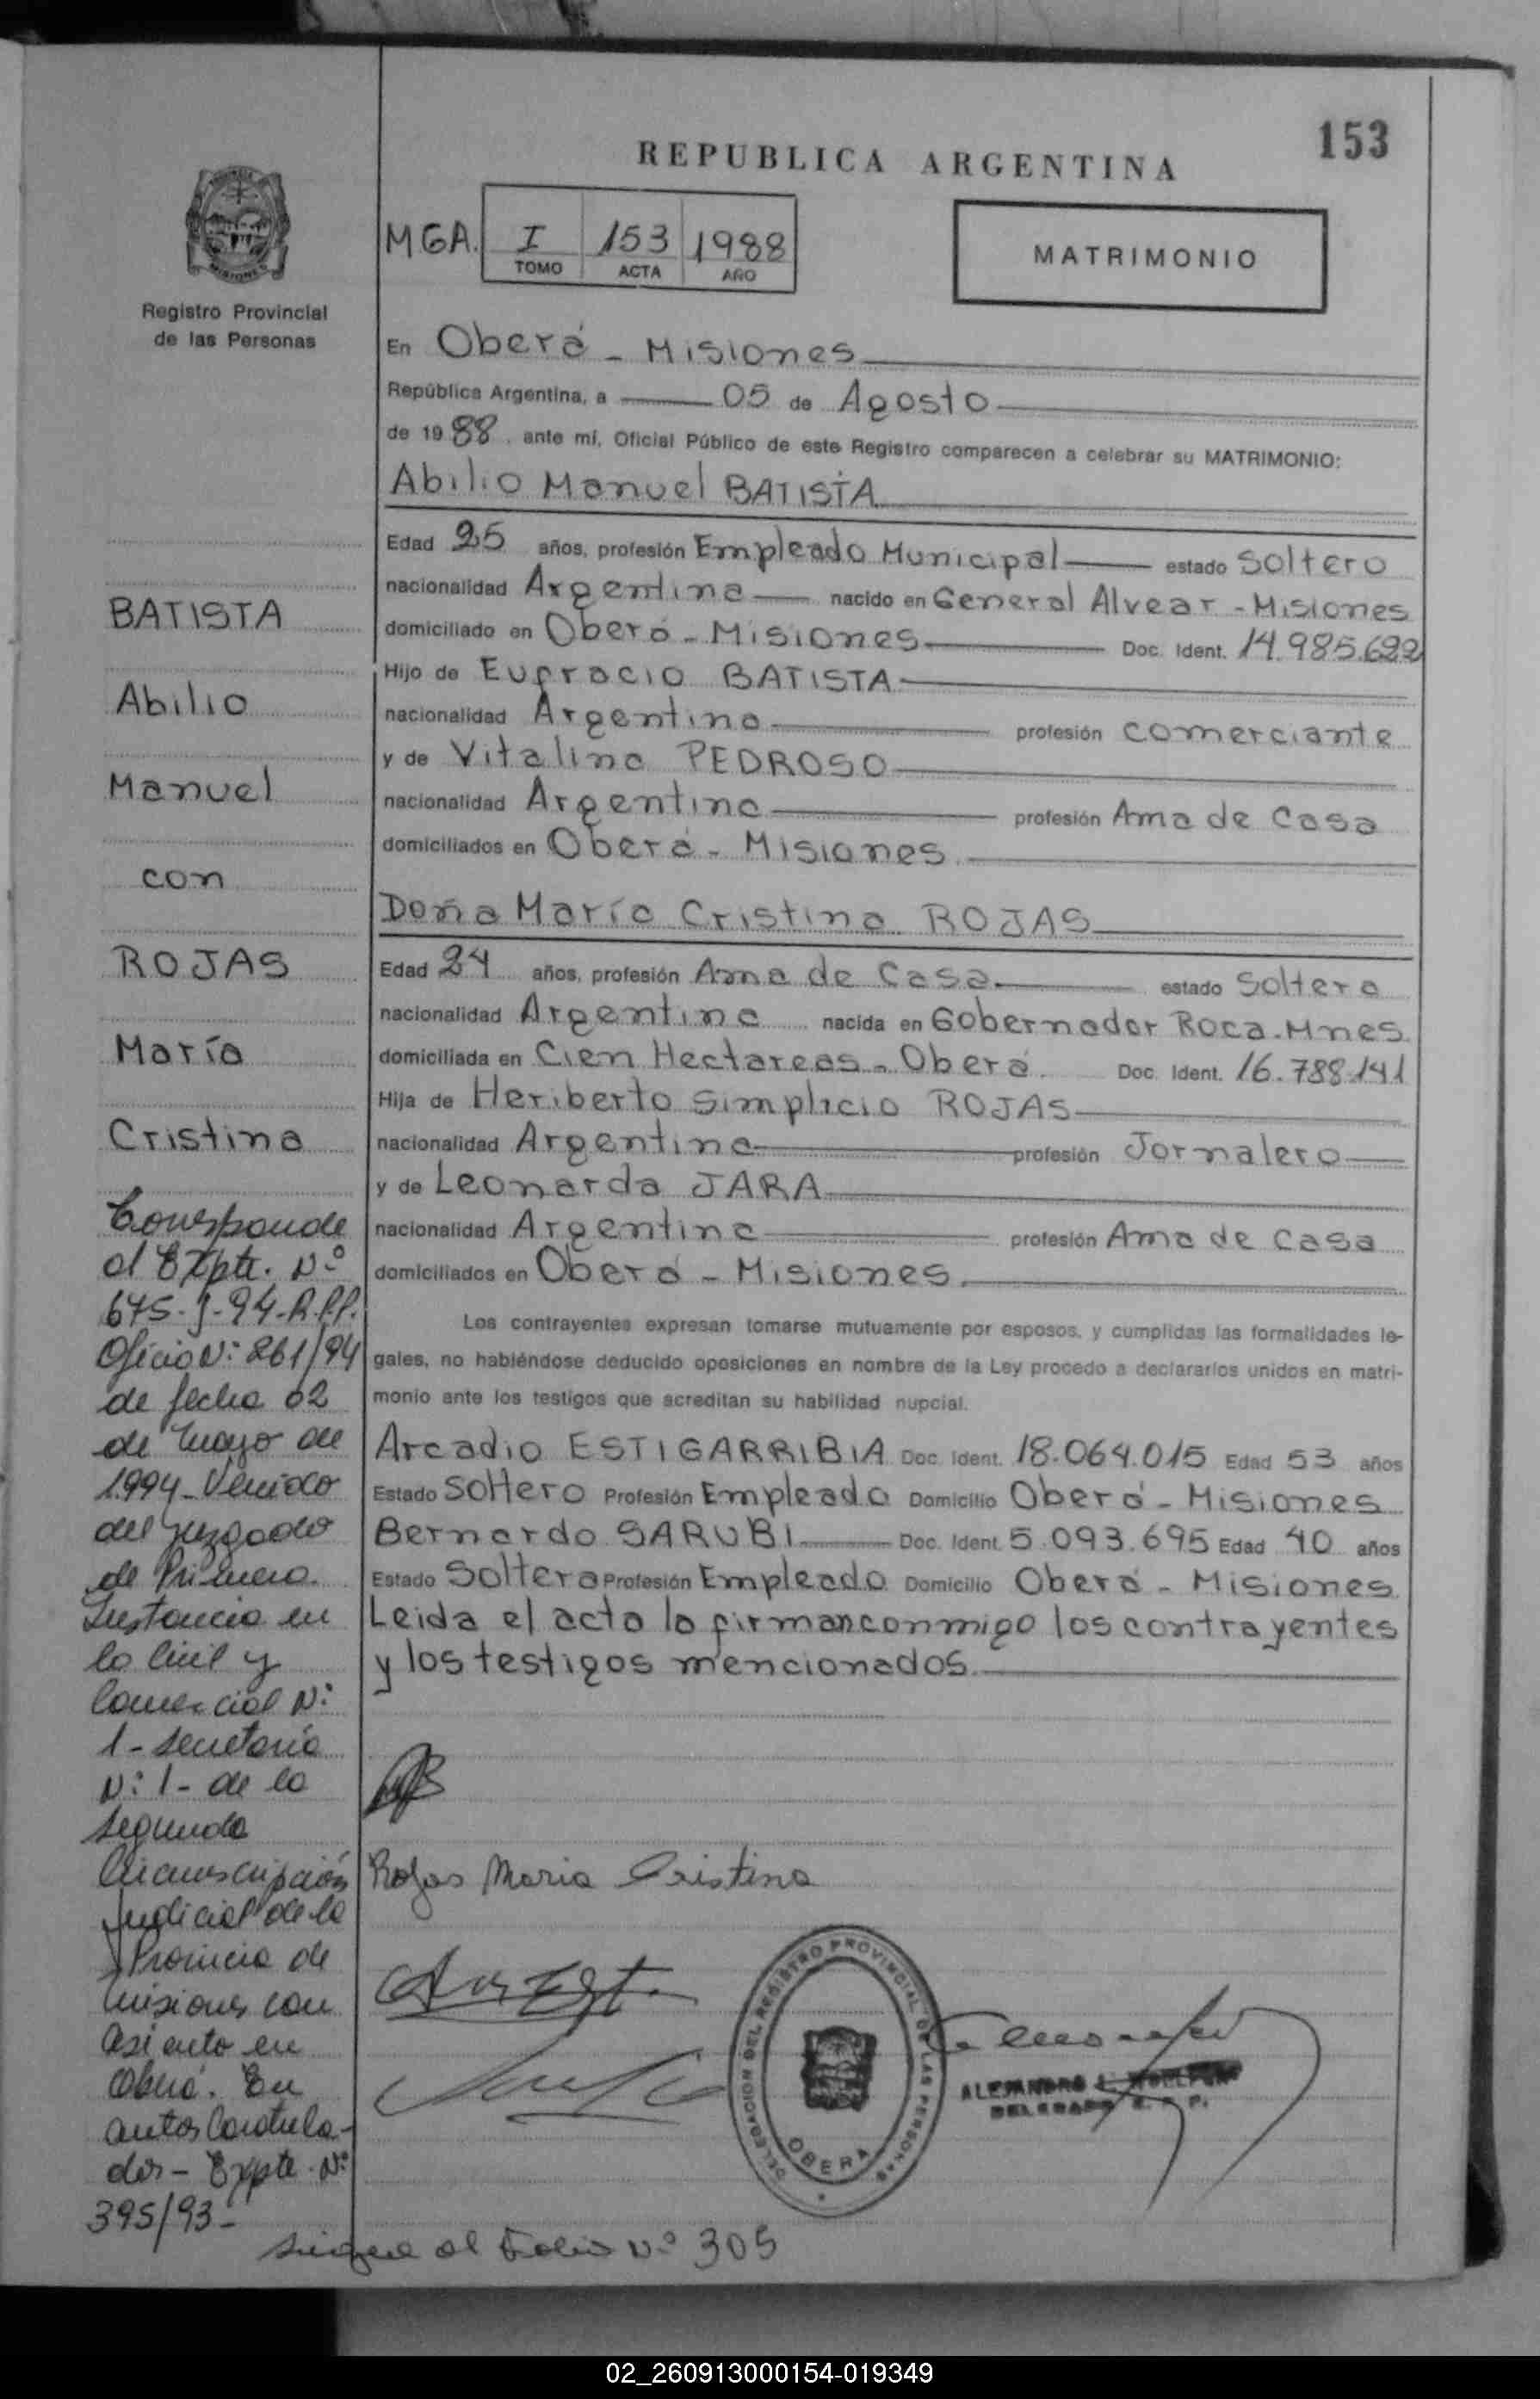 153
REPUBLICA ARGENTINA
MISIONES
Registro Provincial
de las Personas
MGA. I 153 1988
TOMO ACTA AÑO
MATRIMONIO
En Oberá - Misiones
República Argentina, a 05 de Agosto
de 1988, ante mí, Oficial Público de este Registro comparecen a celebrar su MATRIMONIO:
Abilio Manuel BATISTA
Edad 25 años, profesión Empleado Municipal estado Soltero
nacionalidad Argentina nacido en General Alvear - Misiones
domiciliado en Oberá - Misiones Doc. Ident. 14.985.622
Hijo de Eufracio BATISTA
nacionalidad Argentina profesión comerciante
y de Vitalina PEDROSO
nacionalidad Argentina profesión Ama de Casa
domiciliados en Oberá - Misiones.
Doña María Cristina ROJAS
Edad 24 años, profesión Ama de Casa estado Soltera
nacionalidad Argentina nacida en Gobernador Roca. Mnes.
domiciliada en Cien Hectareas - Oberá. Doc. Ident. 16.788.141
Hija de Heriberto Simplicio ROJAS
nacionalidad Argentina profesión Jornalero
y de Leonarda JARA
nacionalidad Argentina profesión Ama de Casa
domiciliados en Oberá - Misiones.
Los contrayentes expresan tomarse mutuamente por esposos, y cumplidas las formalidades le-
gales, no habiéndose deducido oposiciones en nombre de la Ley procedo a declararlos unidos en matri-
monio ante los testigos que acreditan su habilidad nupcial.
Arcadio ESTIGARRIBIA Doc. Ident. 18.064.015 Edad 53 años
Estado Soltero Profesión Empleado Domicilio Oberá - Misiones
Bernardo SARUBI Doc. Ident. 5.093.695 Edad 40 años
Estado Soltero Profesión Empleado Domicilio Oberá - Misiones
Leida el acta la firman conmigo los contrayentes
y los testigos mencionados.
Rojas Maria Cristina
DELEGACION DEL REGISTRO PROVINCIAL DE LAS PERSONAS
OBERA
ALEJANDRO
DELEGADO
BATISTA
Abilio
Manuel
con
ROJAS
María
Cristina
Corresponde
al Expte. Nº
675-J-94-R.P.P.
Oficio Nº 261/94
de fecha 02
de Mayo de
1.994 - Venido
del Juzgado
de Primera
Instancia en
lo Civil y
Comercial Nº
1 - Secretaría
Nº 1 - de la
Segunda
Circunscripción
Judicial de la
Provincia de
Misiones con
asiento en
Oberá. En
autos Caratula-
dos - Expte. Nº
395/93 -
Sigue al Folio Nº 305
02_260913000154-019349